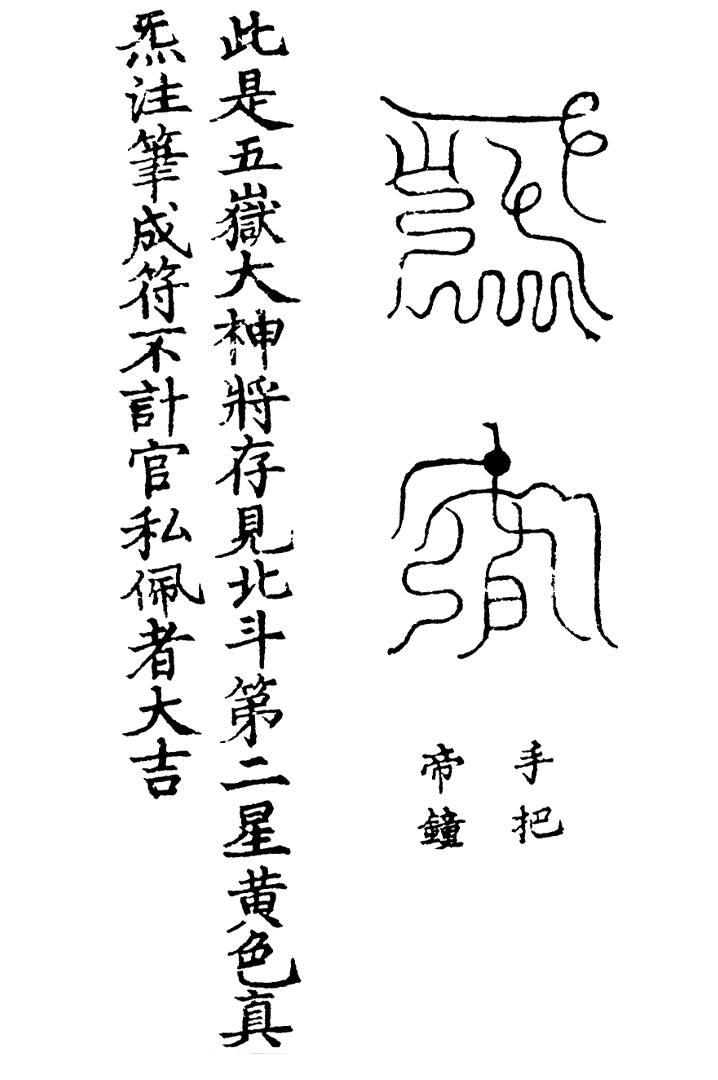 手把
帝鐘
此是五嶽大神將存見北斗第二星黄色真
炁注筆成符不計官私佩者大吉